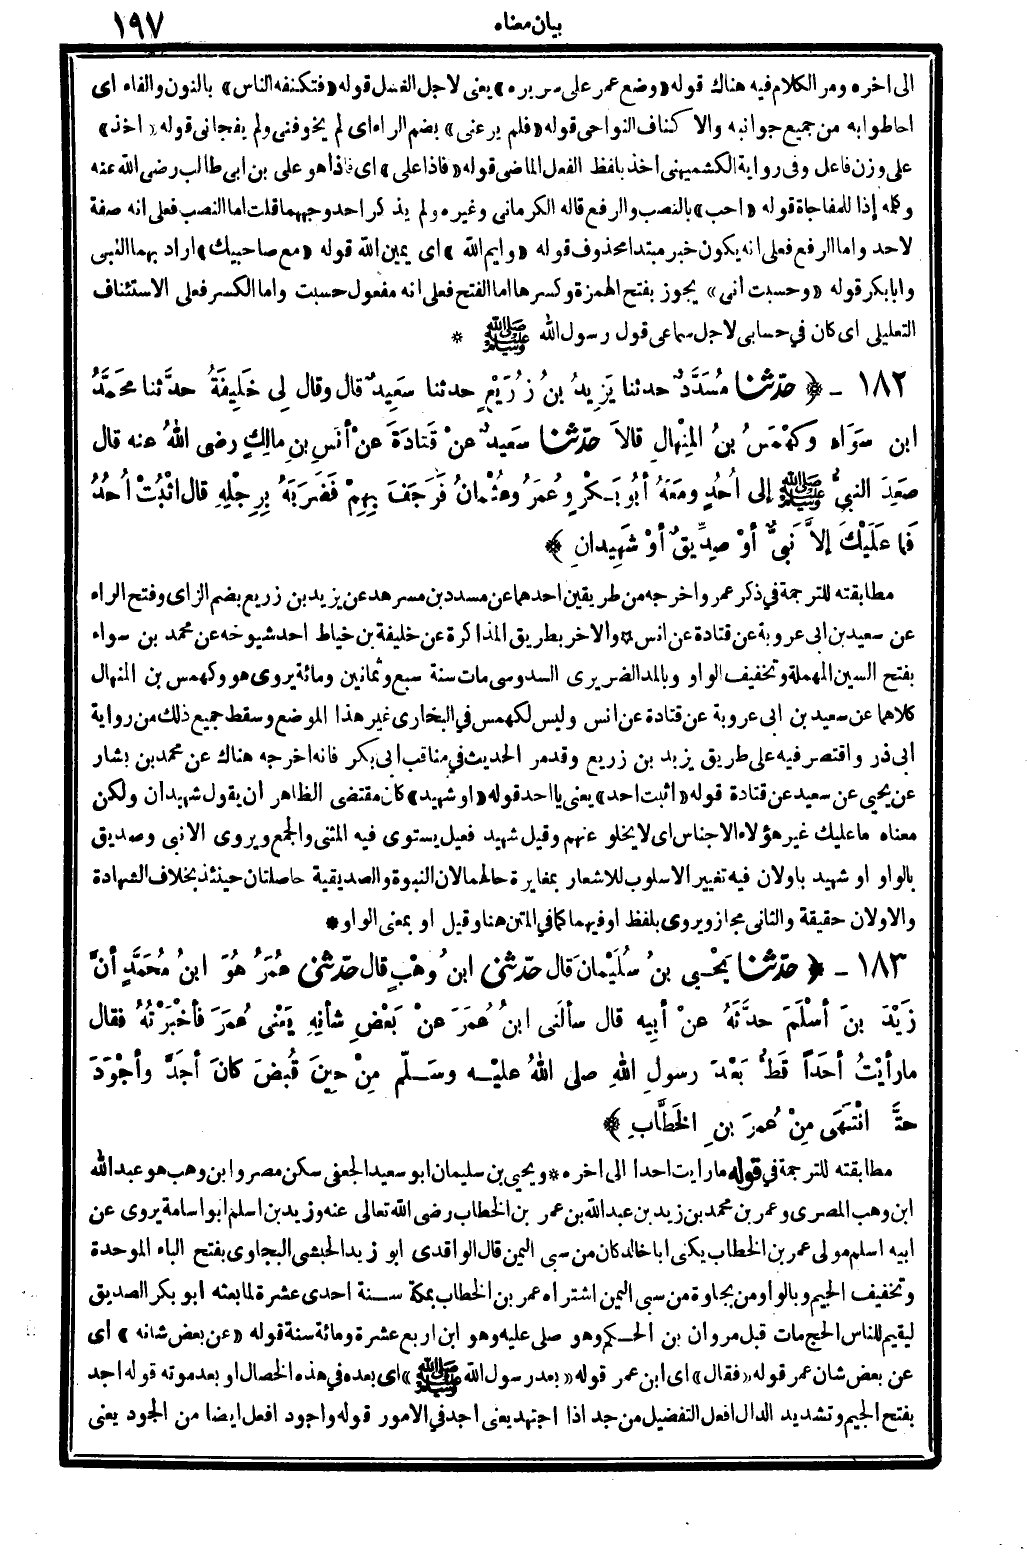 بيان معناه ١٩٧
الى اخره ومر الكلام فيه هناك قوله «وضع عمر على سريره» يعنى لاجل الغسل قوله «فتكنفه الناس» بالنون والفاء اى
احاطوا به من جميع جوانبه والاكناف النواحى قوله «فلم يرعنى» بضم الراء اى لم يخوفنى ولم يفجانى قوله «اخذ»
على وزن فاعل وفى رواية الكشميهنى اخذ بلفظ الفعل الماضى قوله «فاذا على» اى فاذا هو على بن ابى طالب رضى الله عنه
وكلمة إذا للمفاجاة قوله «احب» بالنصب والرفع قاله الكرمانى وغيره ولم يذكر احد وجههما قلت اما النصب فعلى انه صفة
لاحد واما الرفع فعلى انه يكون خبر مبتدا محذوف قوله «وايم الله» اى يمين الله قوله «مع صاحبيك» اراد بهما النبى
وابا بكر قوله «وحسبت أنى» يجوز بفتح الهمزة وكسرها اما الفتح فعلى انه مفعول حسبت واما الكسر فعلى الاستئناف
التعليلى اى كان في حسابى لاجل سماعى قول رسول الله ﷺ *
١٨٢ - ﴿ حدّثنا مُسَدَّدٌ حدثنا يَزِيدُ بنُ زُرَيْعٍ حدثنا سَعِيدٌ قال وقال لِى خَلِيفَةُ حدَّثنا محمَّدُ
ابن سَوَاءٍ وكَهْمَسُ بنُ المِنْهالِ قالاَ حدّثنا سَعيدٌ عنْ قَتادَةَ عنْ أنَسِ بنِ مالِكٍ رضى اللهُ عنه قال
صَعِدَ النبىُّ ﷺ إلى أُحُدٍ ومَعَهُ أبُو بَكْرٍ وعُمَرُ وعُثْمانُ فَرَجَفَ بِهِمْ فَضَرَبَهُ بِرِجْلِهِ قال اثْبُتْ أُحُدُ
فَما عَلَيْكَ إلاَّ نَبىٌّ أوْ صِدِّيقٌ أوْ شَهِيدانِ ﴾
مطابقته للترجمة في ذكر عمر واخرجه من طريقين احدهما عن مسدد بن مسرهد عن يزيد بن زريع بضم الزاى وفتح الراء
عن سعيد بن ابى عروبة عن قتادة عن انس * والاخر بطريق المذاكرة عن خليفة بن خياط احد شيوخه عن محمد بن سواء
بفتح السين المهملة وتخفيف الواو وبالمد الضريرى السدوسى مات سنة سبع وثمانين ومائة يروى هو وكهمس بن المنهال
كلاهما عن سعيد بن ابى عروبة عن قتادة عن انس وليس لكهمس في البخارى غير هذا الموضع وسقط جميع ذلك من رواية
ابى ذر واقتصر فيه على طريق يزيد بن زريع وقد مر الحديث في مناقب ابى بكر فانه اخرجه هناك عن محمد بن بشار
عن يحيى عن سعيد عن قتادة قوله «اثبت احد» يعنى يا احد قوله «او شهيد» كان مقتضى الظاهر ان يقول شهيدان ولكن
معناه ما عليك غير هؤلاء الاجناس اى لا يخلو عنهم وقيل شهيد فعيل يستوى فيه المثنى والجمع ويروى الا نبى وصديق
بالواو او شهيد باو لان فيه تغيير الاسلوب للاشعار بمغايرة حالهما لان النبوة والصديقية حاصلتان حينئذ بخلاف الشهادة
والاولان حقيقة والثانى مجاز ويروى بلفظ او فيهما كما في المتن هنا وقيل او بمعنى الواو *
١٨٣ - ﴿ حدّثنا يَحْيى بنُ سُلَيْمانَ قال حدّثنى ابنُ وهْبٍ قال حدّثنى عُمَرُ هُوَ ابنُ مُحَمَّدٍ أنَّ
زَيْدَ بنَ أسْلَمَ حدَّثَهُ عنْ أبِيهِ قال سألَنى ابنُ عُمَرَ عنْ بَعْضِ شأنِهِ يَعْنى عُمَرَ فأخْبَرْتُهُ فقال
ما رأيْتُ أحَداً قَطُّ بَعْدَ رسولِ اللهِ صلى اللهُ عليْه وسَلّم مِنْ حِينَ قُبِضَ كانَ أجَدَّ وأجْوَدَ
حتَّى انْتَهَى مِنْ عُمَرَ بنِ الخَطَّابِ ﴾
مطابقته للترجمة في قوله ما رايت احدا الى اخره * ويحيى بن سليمان ابو سعيد الجعفى سكن مصر وابن وهب هو عبد الله
ابن وهب المصرى وعمر بن محمد بن زيد بن عبد الله بن عمر بن الخطاب رضى الله تعالى عنه وزيد بن اسلم ابو اسامة يروى عن
ابيه اسلم مولى عمر بن الخطاب يكنى ابا خالد كان من سبى اليمن قال الواقدى ابو زيد الحبشى البجاوى بفتح الباء الموحدة
وتخفيف الجيم وبالواو من بجاوة من سبى اليمن اشتراه عمر بن الخطاب بمكة سنة احدى عشرة لما بعثه ابو بكر الصديق
ليقيم للناس الحج مات قبل مروان بن الحكم وهو صلى عليه وهو ابن اربع عشرة ومائة سنة قوله «عن بعض شانه» اى
عن بعض شان عمر قوله «فقال» اى ابن عمر قوله «بعد رسول الله ﷺ» اى بعده في هذه الخصال او بعد موته قوله اجد
بفتح الجيم وتشديد الدال افعل التفضيل من جد اذا اجتهد يعنى اجد في الامور قوله واجود افعل ايضا من الجود يعنى